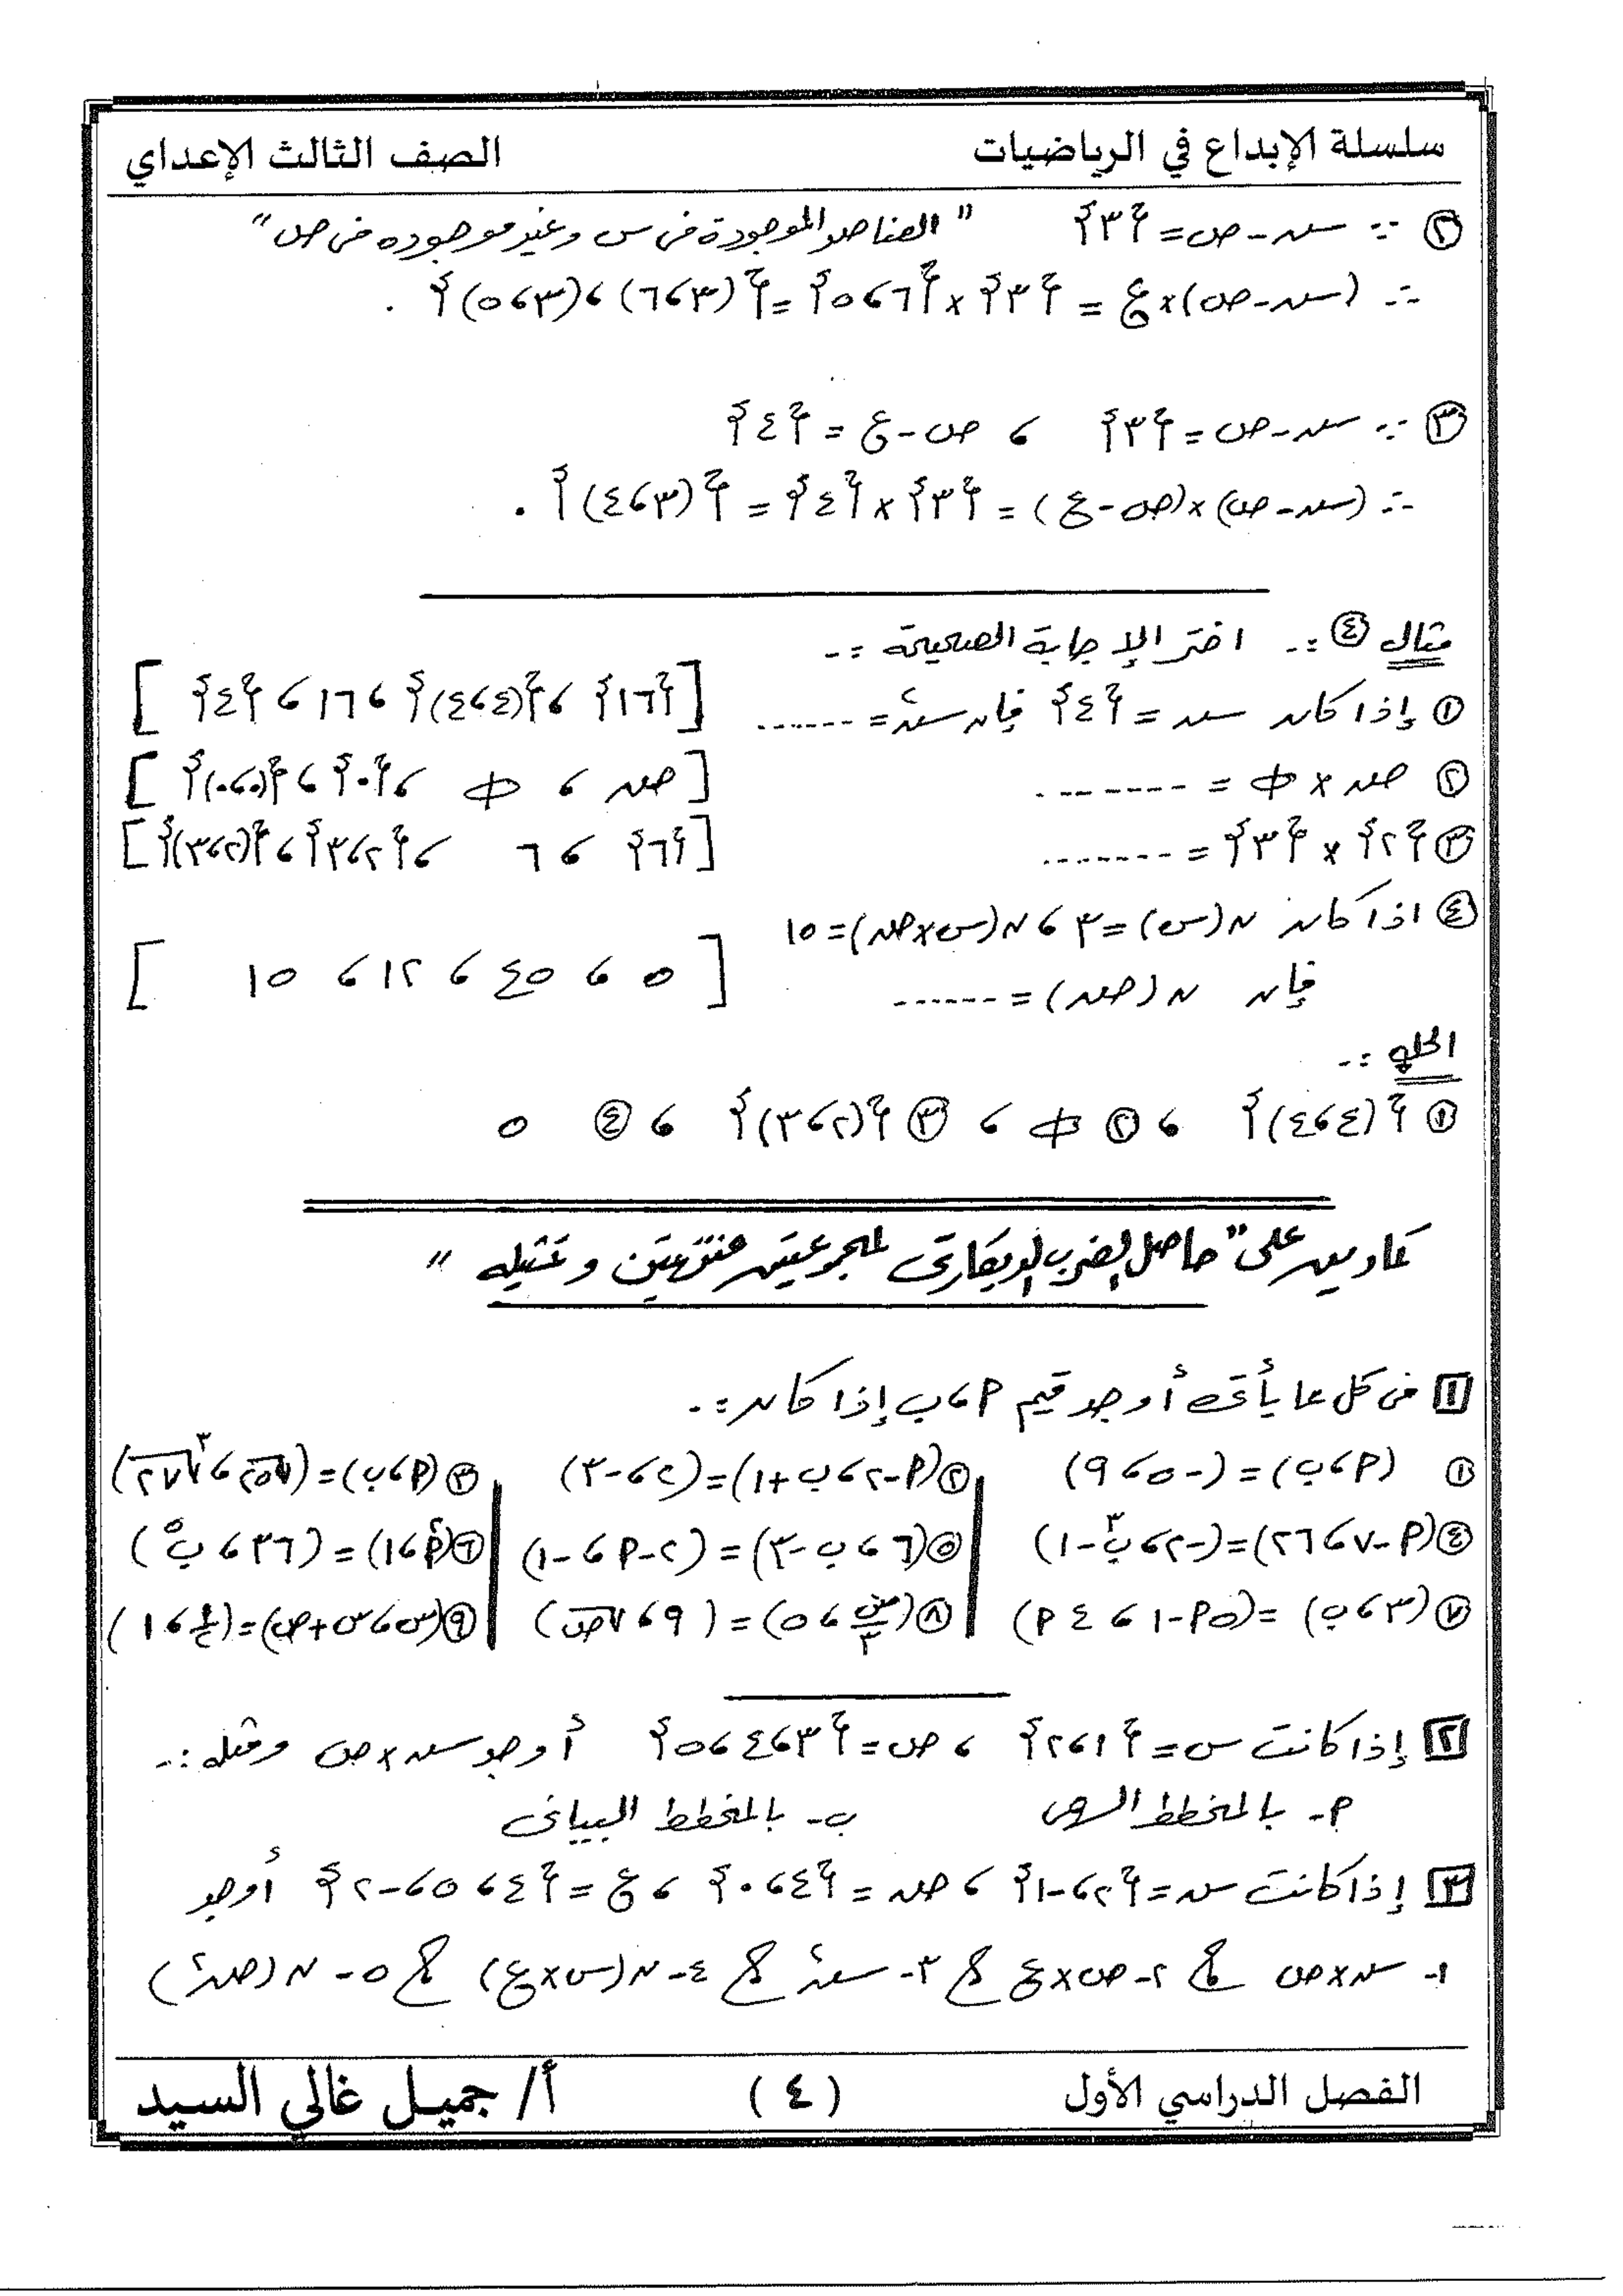 سلسلة الإبداع في الرياضيات الصف الثالث الإعدادي
② ∵ س - ص = {٣} "العناصر الموجودة في س وغير موجوده في ص"
∴ (س - ص) × ع = {٣} × {٦، ٥} = {(٣، ٦)، (٣، ٥)} .
③ ∵ س - ص = {٣} ، ص - ع = {٤}
∴ (س - ص) × (ص - ع) = {٣} × {٤} = {(٣، ٤)} .
مثال ④ :- اختر الإجابة الصحيحة :-
① إذا كان س = {٤} فإن س² = ------ [{١٦} ، {(٤، ٤)} ، ١٦ ، {٤}]
② ص × Φ = ------- [ص ، Φ ، {٠} ، {(٠، ٠)}]
③ {٢} × {٣} = ------- [{٦} ، ٦ ، {٢، ٣} ، {(٢، ٣)}]
④ اذا كان ن(س) = ٣ ، ن(س × ص) = ١٥
فإن ن(ص) = ------ [٥ ، ٤٥ ، ١٢ ، ١٥]
الحل :-
① {(٤، ٤)} ، ② Φ ، ③ {(٢، ٣)} ، ④ ٥
تمارين على "حاصل الضرب الديكارتى لمجموعتين منتهيتين وتمثيله"
١ فى كل مما يأتى أوجد قيم ٩، ب إذا كان :-
① (٩، ب) = (-٥، ٩) ② (٩ - ٢، ب + ١) = (٢، -٣) ③ (٩، ب) = (√٢٥، ∛٢٧)
④ (٩ - ٧، ٢٦) = (-٢، ب³ - ١) ⑤ (٦، ب - ٣) = (٢ - ٩، -١) ⑥ (٩²، ١) = (٣٦، ب⁵)
⑦ (٣، ب) = (٥٩ - ١، ٤٩) ⑧ (س/٣، ٥) = (٩، √ص) ⑨ (س، س + ص) = (١/٢، ١)
٢ إذا كانت س = {١، ٢} ، ص = {٣، ٤، ٥} أوجد س × ص ومثله :-
٩- بالمخطط السهمى ب- بالمخطط البيانى
٣ إذا كانت س = {٢، -١} ، ص = {٤، ٠} ، ع = {٤، ٥، -٢} أوجد
١- س × ص ٢- ص × ع ٣- س² ٤- ن(س × ع) ٥- ن(ص²)
الفصل الدراسي الأول (٤) أ/ جميل غالي السيد